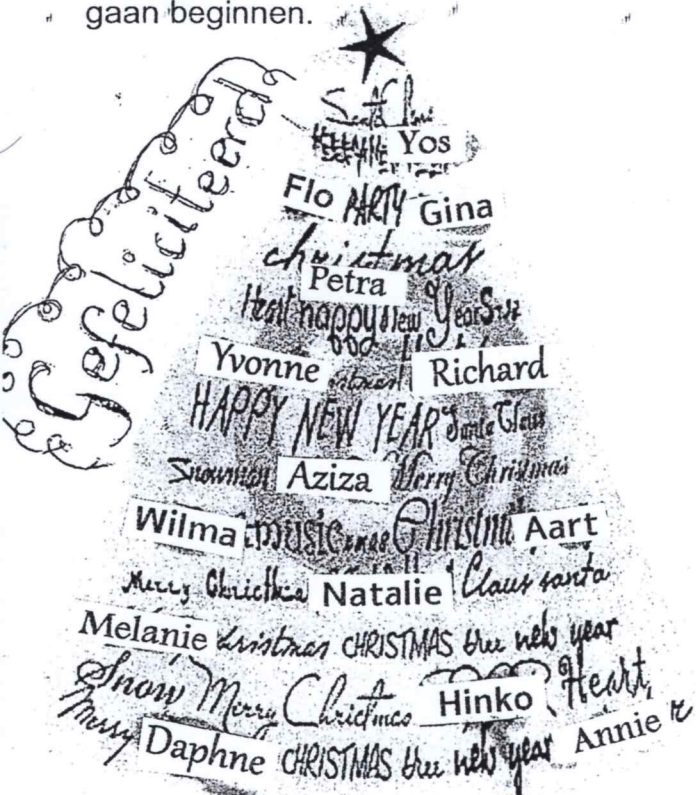 gaan beginnen.
Gefeliciteerd
Santa
Yos
Flo PARTY Gina
christmas
Petra
Heart happy New Year
Yvonne Richard
HAPPY NEW YEAR Santa Claus
Snowman Aziza Merry Christmas
Wilma music Christm Aart
Merry Natalie Claus santa
Melanie christmas CHRISTMAS tree new year
Snow Merry Christmas Hinko Heart
Merry Daphne CHRISTMAS tree new year Annie